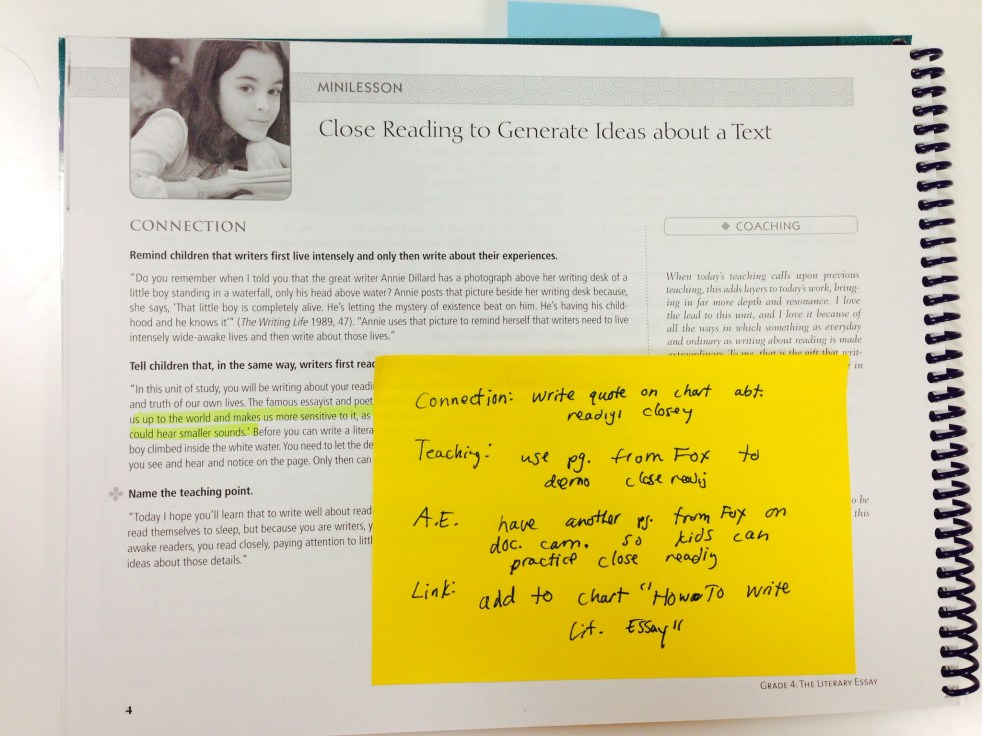 MINILESSON
Close Reading to Generate Ideas about a Text
CONNECTION
Remind children that writers first live intensely and only then write about their experiences.
"Do you remember when I told you that the great writer Annie Dillard has a photograph above her writing desk of a
little boy standing in a waterfall, only his head above water? Annie posts that picture beside her writing desk because,
she says, 'That little boy is completely alive. He's letting the mystery of existence beat on him. He's having his child-
hood and he knows it'" (The Writing Life 1989, 47). "Annie uses that picture to remind herself that writers need to live
intensely wide-awake lives and then write about those lives."
Tell children that, in the same way, writers first
"In this unit of study, you will be writing about your
and truth of our own lives. The famous essayist and poet
us up to the world and makes us more sensitive to it, as
could hear smaller sounds.' Before you can write a
boy climbed inside the white water. You need to let the
you see and hear and notice on the page. Only then can
Name the teaching point.
"Today I hope you'll learn that to write well about
read themselves to sleep, but because you are writers,
awake readers, you read closely, paying attention to
ideas about those details."
◆ COACHING
When today's teaching calls upon previous
teaching, this adds layers to today's work, bring-
ing in far more depth and resonance. I love
the lead to this unit, and I love it because of
all the ways in which something as everyday
and ordinary as writing about reading is made
extraordinary. To me, that is the gift that writ-
in
o be
this
Connection: write quote on chart abt.
closey
Teaching: use pg. from Fox to
demo close
A.E. have another pg. from Fox on
doc. cam. so kids can
practice close readig
Link: add to chart "How To write
Lit. Essay"
GRADE 4: THE LITERARY ESSAY
4